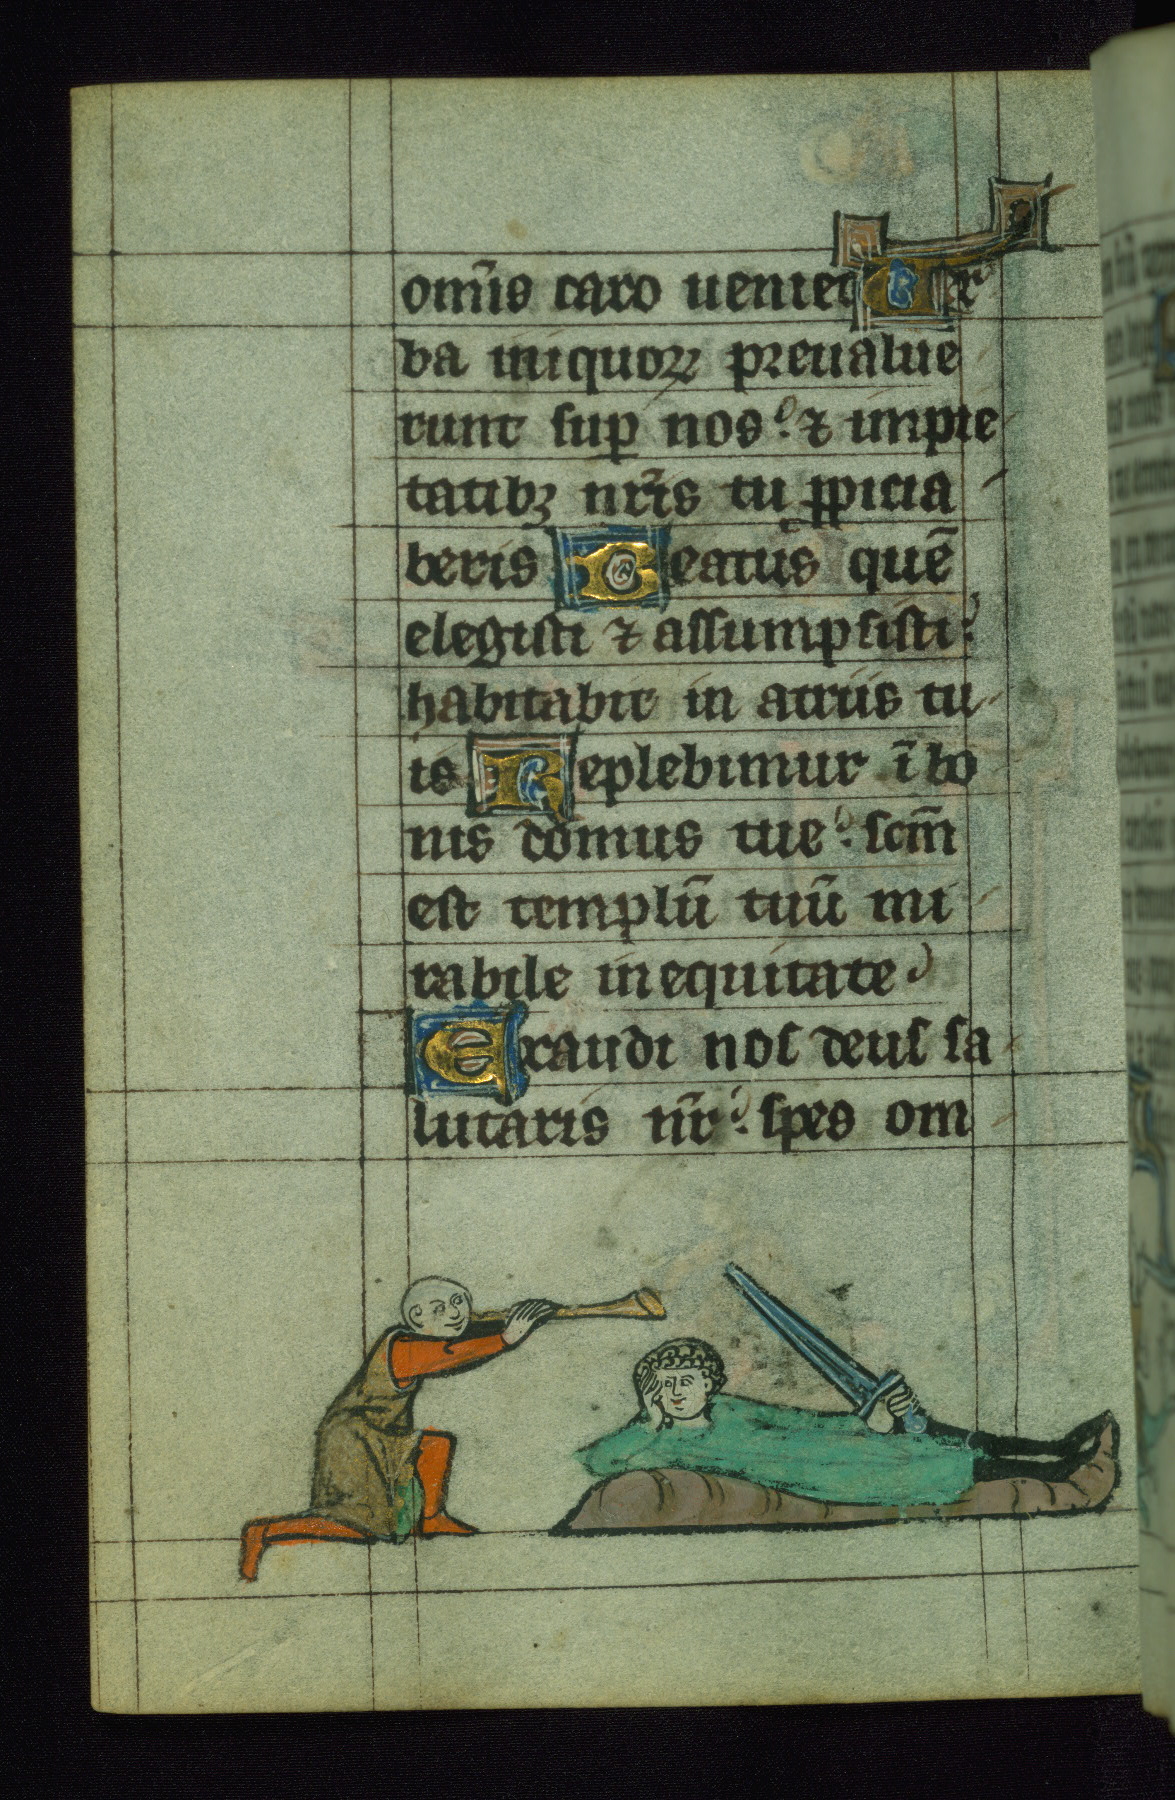 om̄is caro ueniet Uer
ba iniquoꝝ preualue
runt sup nos: ⁊ impie
tatibꝫ nr̄is tu ꝓpicia
beris Beatus quē
elegisti ⁊ assumpsisti:
habitabit in atriis tu
is Replebimur ī bo
nis domus tue: scm̄
est templū tuū mi
rabile in equitate
Exaudi nos deus sa
lutaris nr̄: spes om